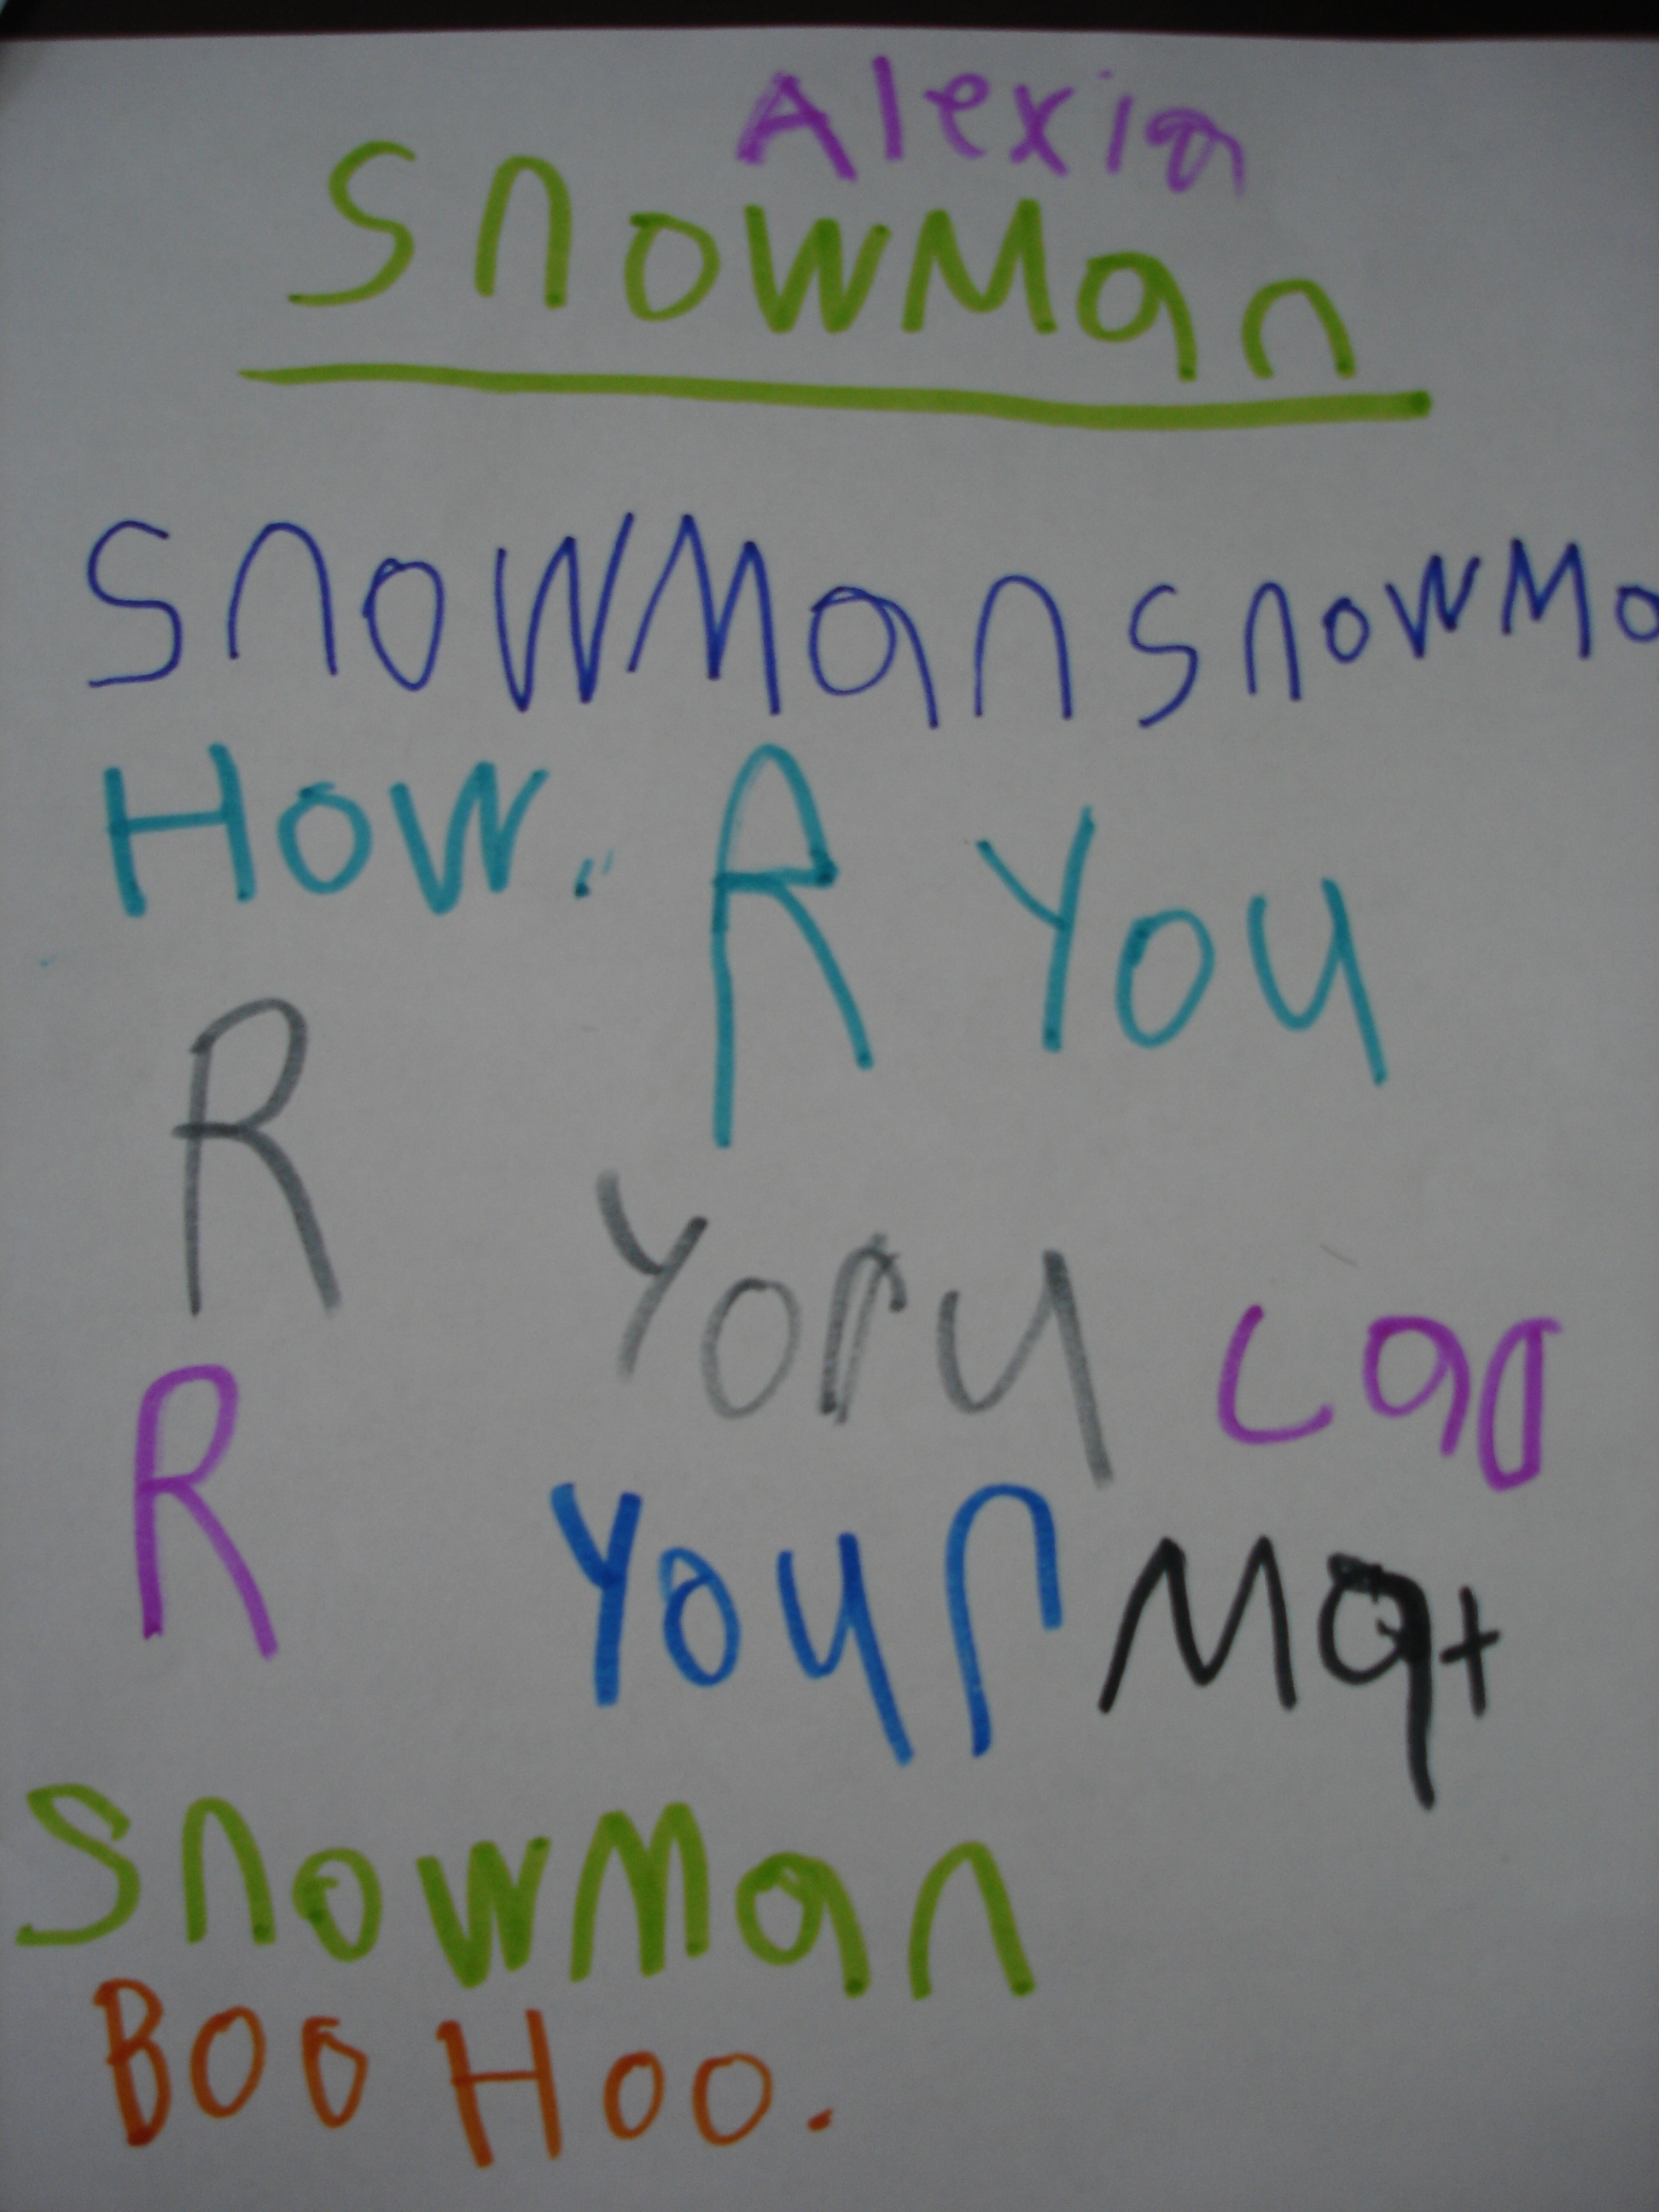 Alexia
SnowMan
SnowMan SnowMa
How. R You
R Yoru Lad
R Your Mat
SnowMan
Boo Hoo.